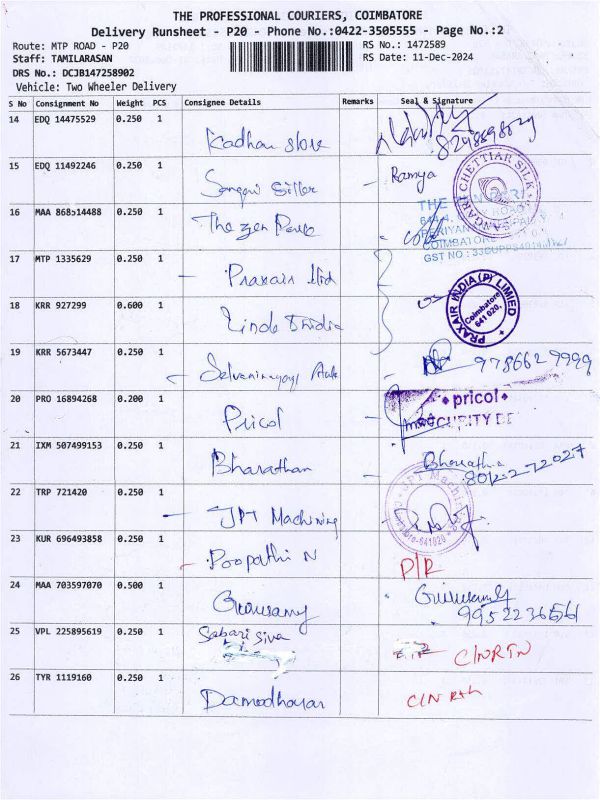 THE PROFESSIONAL COURIERS, COIMBATORE
Delivery Runsheet - P20 - Phone No.:0422-3505555 - Page No.:2
Route: MTP ROAD - P20 RS No.: 1472589
Staff: TAMILARASAN RS Date: 11-Dec-2024
DRS No.: DCJB147258902
Vehicle: Two Wheeler Delivery
S No Consignment No Weight PCS Consignee Details Remarks Seal & Signature
14 EDQ 14475529 0.250 1 Kadhan store
15 EDQ 11492246 0.250 1 Ramya
SANGARI CHETTIAR SILK
16 MAA 868514488 0.250 1 The Zen Park
COIMBATORE
17 MTP 1335629 0.250 1 Praxair Ltd
18 KRR 927299 0.600 1 Linde India
PRAXAIR INDIA (P) LIMIED
Coimbatore
641 020.
19 KRR 5673447 0.250 1 9786629999
20 PRO 16894268 0.200 1 Pricol
pricol
21 IXM 507499153 0.250 1 Bharathan
22 TRP 721420 0.250 1 JPT Machining
23 KUR 696493858 0.250 1 Poopathi N P/R
24 MAA 703597070 0.500 1 Gurusamy Gurusamy
9952236561
25 VPL 225895619 0.250 1 Sabari Siva C/NRTN
26 TYR 1119160 0.250 1 Damodharan